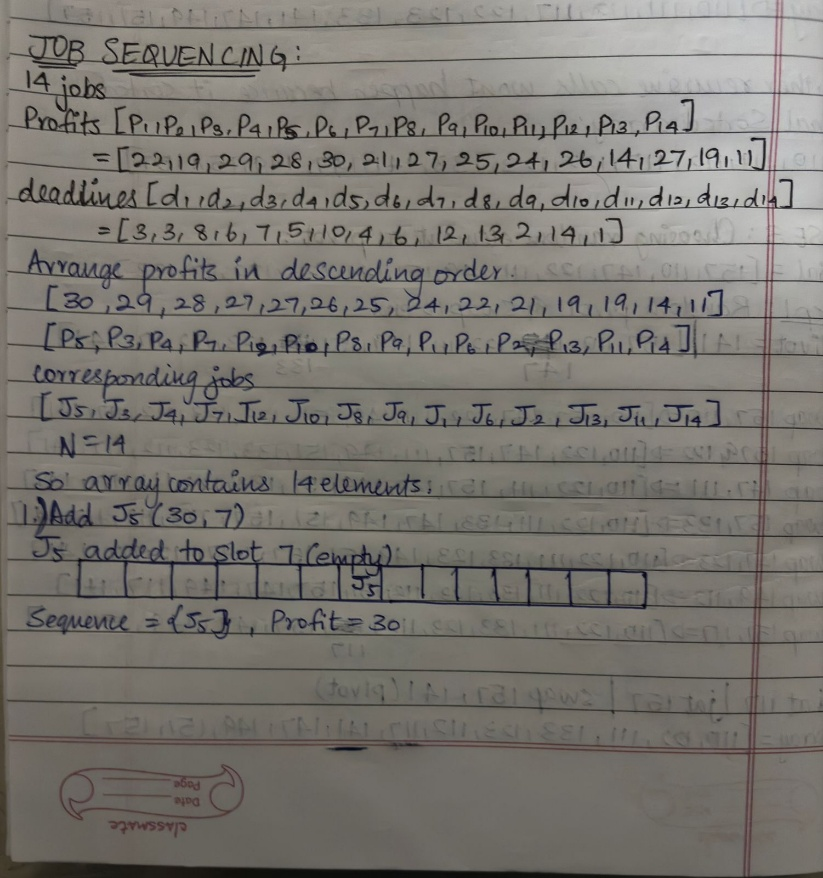 JOB SEQUENCING:
14 jobs
Profits [P1, P2, P3, P4, P5, P6, P7, P8, P9, P10, P11, P12, P13, P14]
= [22, 19, 29, 28, 30, 21, 27, 25, 24, 26, 14, 27, 19, 11]
deadlines [d1, d2, d3, d4, d5, d6, d7, d8, d9, d10, d11, d12, d13, d14]
= [3, 3, 8, 6, 7, 5, 10, 4, 6, 12, 13, 2, 14, 1]
Arrange profits in descending order.
[30, 29, 28, 27, 27, 26, 25, 24, 22, 21, 19, 19, 14, 11]
[P5, P3, P4, P7, P12, P10, P8, P9, P1, P6, P2, P13, P11, P14]
corresponding jobs
[J5, J3, J4, J7, J12, J10, J8, J9, J1, J6, J2, J13, J11, J14]
N=14
So array contains 14 elements:
1.) Add J5 (30, 7)
J5 added to slot 7 (empty)
J5
Sequence = {J5}, Profit = 30
Page
Date
classmate